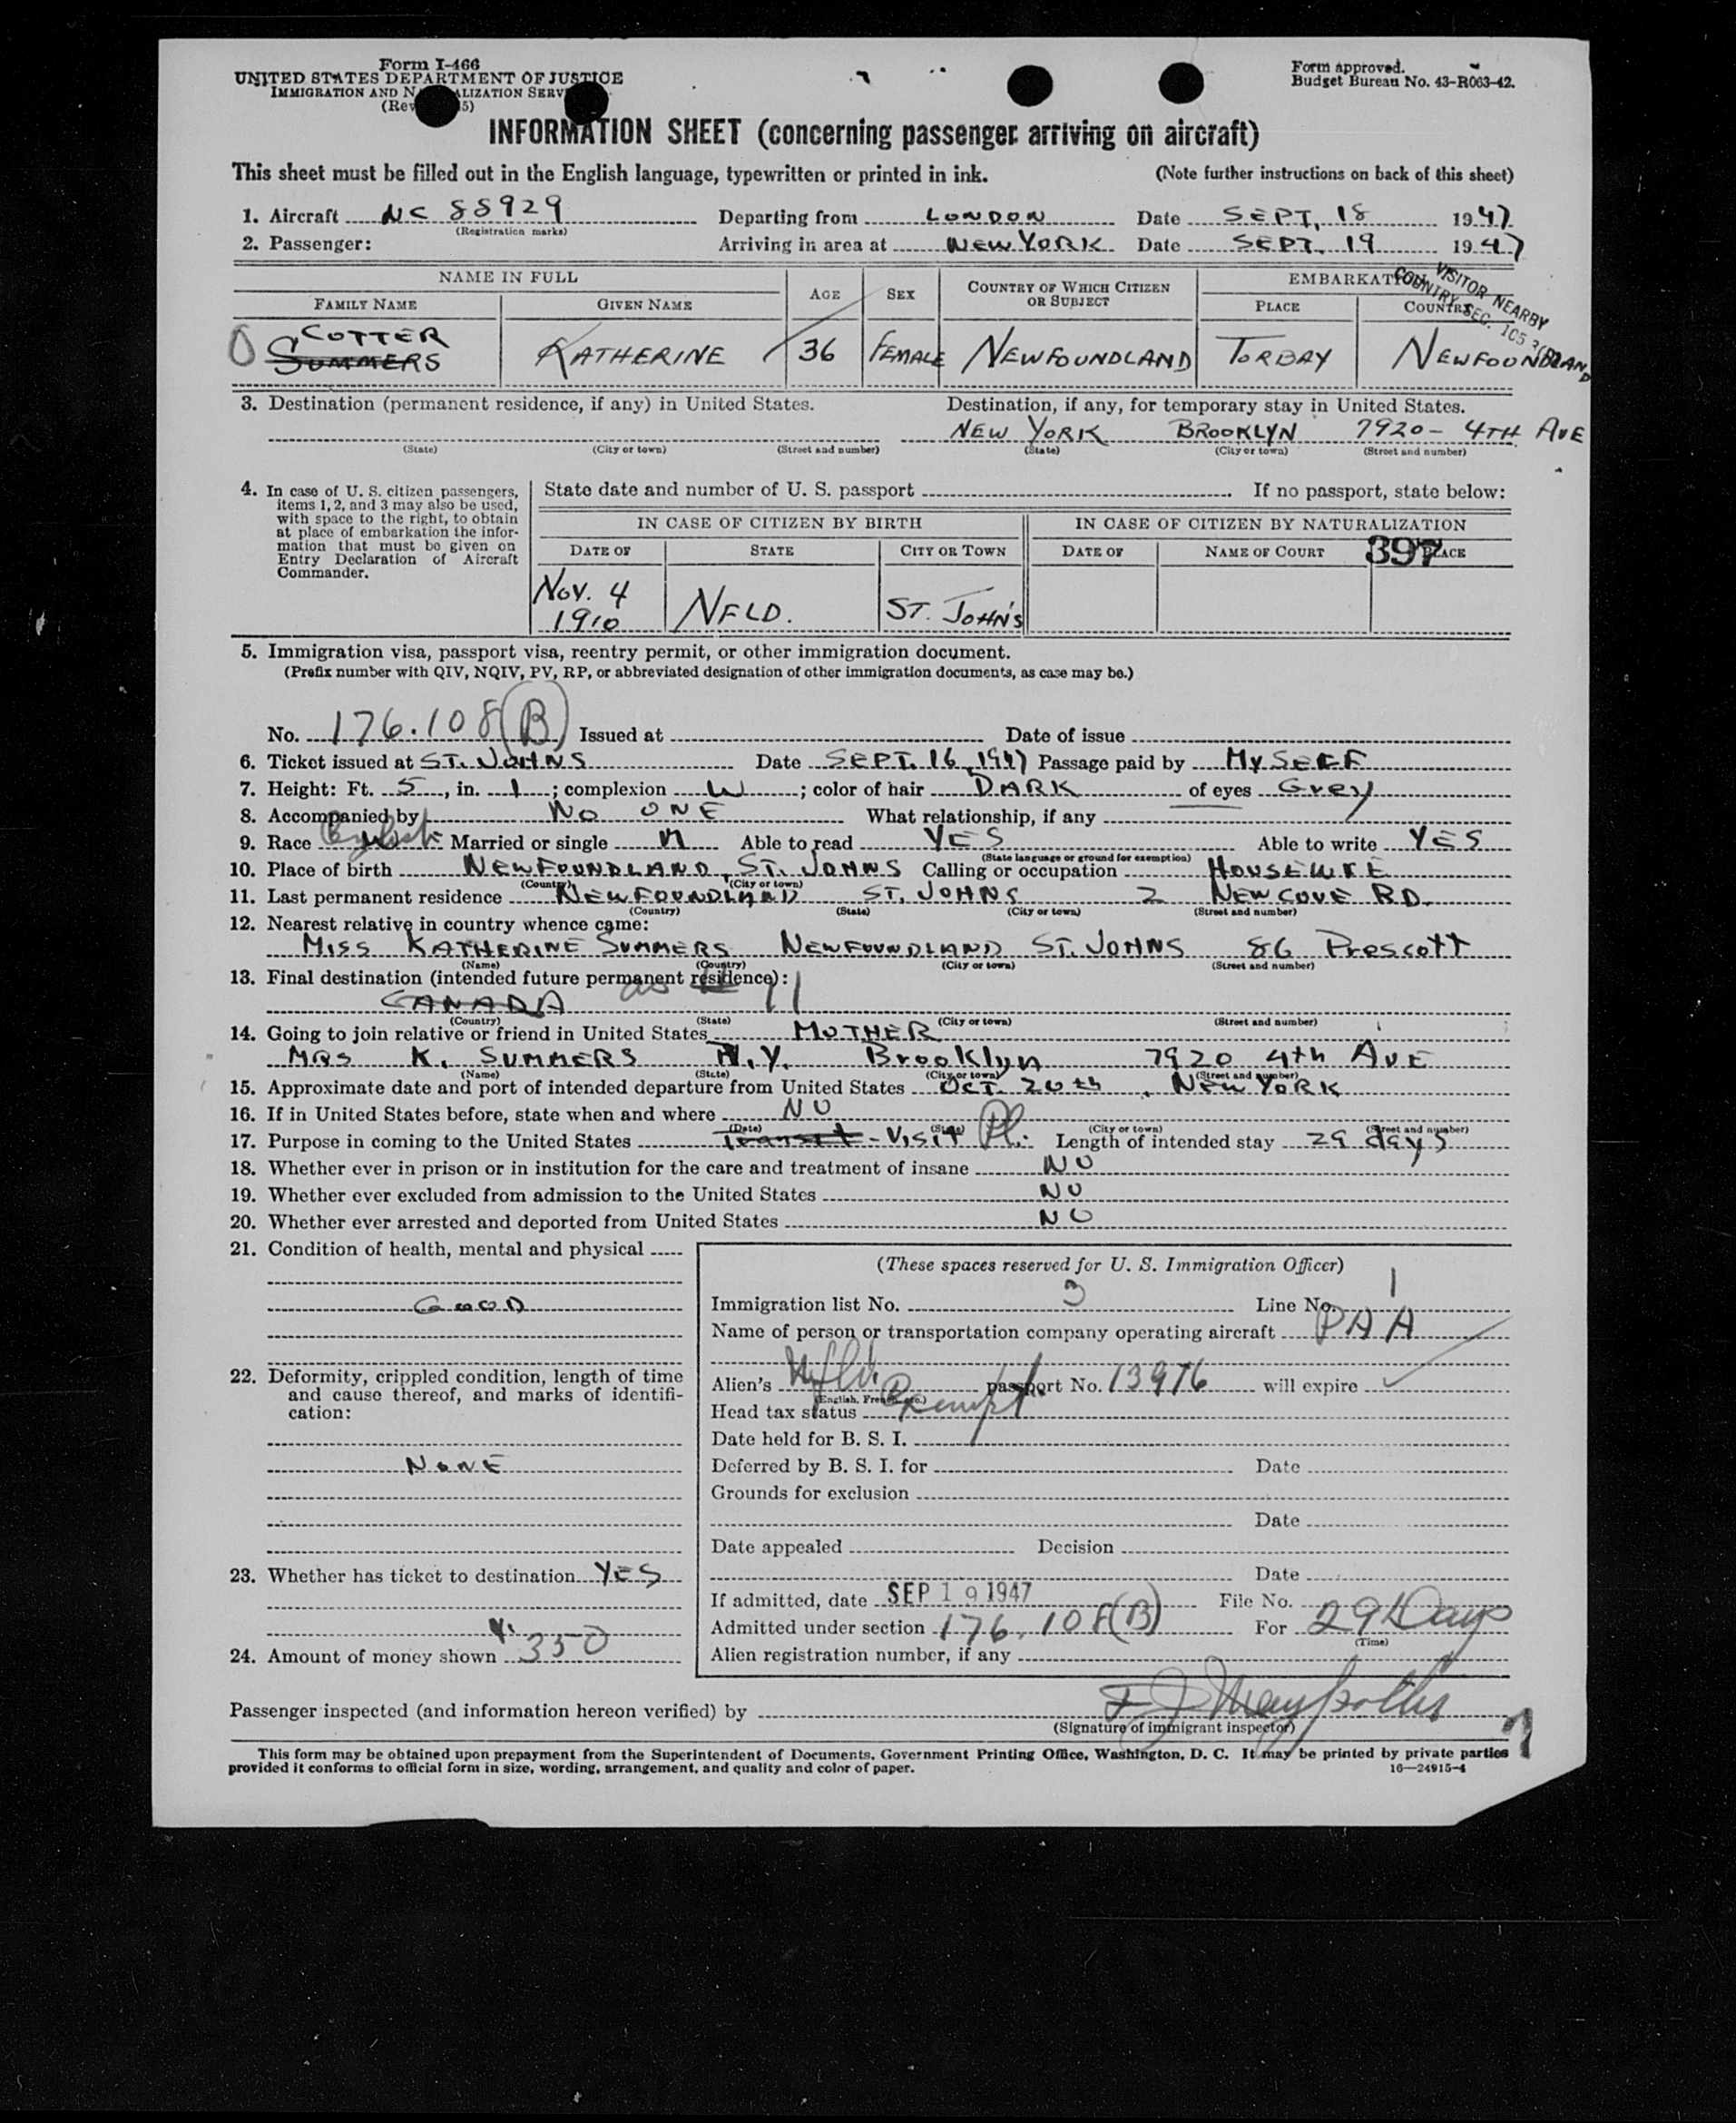 Form I-466
UNITED STATES DEPARTMENT OF JUSTICE
IMMIGRATION AND NATURALIZATION SERVICE
Form approved.
Budget Bureau No. 43-R063-42.
INFORMATION SHEET (concerning passenger arriving on aircraft)
This sheet must be filled out in the English language, typewritten or printed in ink. (Note further instructions on back of this sheet)
1. Aircraft NC 88929 Departing from LONDON Date SEPT. 18 1947
(Registration marks)
2. Passenger: Arriving in area at NEW YORK Date SEPT. 19 1947
VISITOR NEARBY
COUNTRY SEC.
NAME IN FULL AGE SEX COUNTRY OF WHICH CITIZEN OR SUBJECT EMBARKATION
FAMILY NAME GIVEN NAME PLACE COUNTRY
COTTER
SUMMERS KATHERINE 36 FEMALE NEWFOUNDLAND TORBAY NEWFOUNDLAND
3. Destination (permanent residence, if any) in United States. Destination, if any, for temporary stay in United States.
NEW YORK BROOKLYN 7920 - 4TH AVE
(State) (City or town) (Street and number) (State) (City or town) (Street and number)
4. In case of U. S. citizen passengers,
items 1, 2, and 3 may also be used,
with space to the right, to obtain
at place of embarkation the infor-
mation that must be given on
Entry Declaration of Aircraft
Commander.
State date and number of U. S. passport If no passport, state below:
IN CASE OF CITIZEN BY BIRTH IN CASE OF CITIZEN BY NATURALIZATION
DATE OF STATE CITY OR TOWN DATE OF NAME OF COURT 397 PLACE
NOV. 4
1910 NFLD. ST. JOHN'S
5. Immigration visa, passport visa, reentry permit, or other immigration document.
(Prefix number with QIV, NQIV, PV, RP, or abbreviated designation of other immigration documents, as case may be.)
No. 176.108(B) Issued at Date of issue
6. Ticket issued at ST. JOHNS Date SEPT. 16 1947 Passage paid by MYSELF
7. Height: Ft. 5, in. 1; complexion W; color of hair DARK of eyes Grey
8. Accompanied by NO ONE What relationship, if any
9. Race English Married or single M Able to read YES Able to write YES
(State language or ground for exemption)
10. Place of birth NEWFOUNDLAND, ST. JOHNS Calling or occupation HOUSEWIFE
(Country) (City or town)
11. Last permanent residence NEWFOUNDLAND ST. JOHNS 2 NEWCOVE RD.
(Country) (State) (City or town) (Street and number)
12. Nearest relative in country whence came:
MISS KATHERINE SUMMERS NEWFOUNDLAND ST. JOHNS 86 Prescott
(Name) (Country) (City or town) (Street and number)
13. Final destination (intended future permanent residence):
CANADA as 11
(Country) (State) (City or town) (Street and number)
14. Going to join relative or friend in United States MOTHER
MRS K. SUMMERS N.Y. Brooklyn 7920 4th AVE
(Name) (State) (City or town) (Street and number)
15. Approximate date and port of intended departure from United States OCT. 20th, NEW YORK
16. If in United States before, state when and where NO
(Date) (State) (City or town) (Street and number)
17. Purpose in coming to the United States Transit - Visit Pl. Length of intended stay 29 days
18. Whether ever in prison or in institution for the care and treatment of insane NO
19. Whether ever excluded from admission to the United States NO
20. Whether ever arrested and deported from United States NO
21. Condition of health, mental and physical
GOOD
22. Deformity, crippled condition, length of time
and cause thereof, and marks of identifi-
cation:
NONE
23. Whether has ticket to destination YES
24. Amount of money shown 350
(These spaces reserved for U. S. Immigration Officer)
Immigration list No. 3 Line No. 1
Name of person or transportation company operating aircraft PAA
Alien's Nfld. passport No. 13976 will expire
(English, French, etc.)
Head tax status Exempt
Date held for B. S. I.
Deferred by B. S. I. for Date
Grounds for exclusion
Date
Date appealed Decision
Date
If admitted, date SEP 19 1947 File No.
Admitted under section 176.108(B) For 29 Days
(Time)
Alien registration number, if any
Passenger inspected (and information hereon verified) by
(Signature of immigrant inspector)
This form may be obtained upon prepayment from the Superintendent of Documents, Government Printing Office, Washington, D. C. It may be printed by private parties
provided it conforms to official form in size, wording, arrangement, and quality and color of paper. 16—24915-4